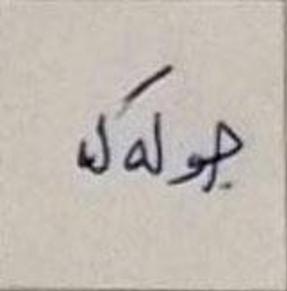 جولەکە